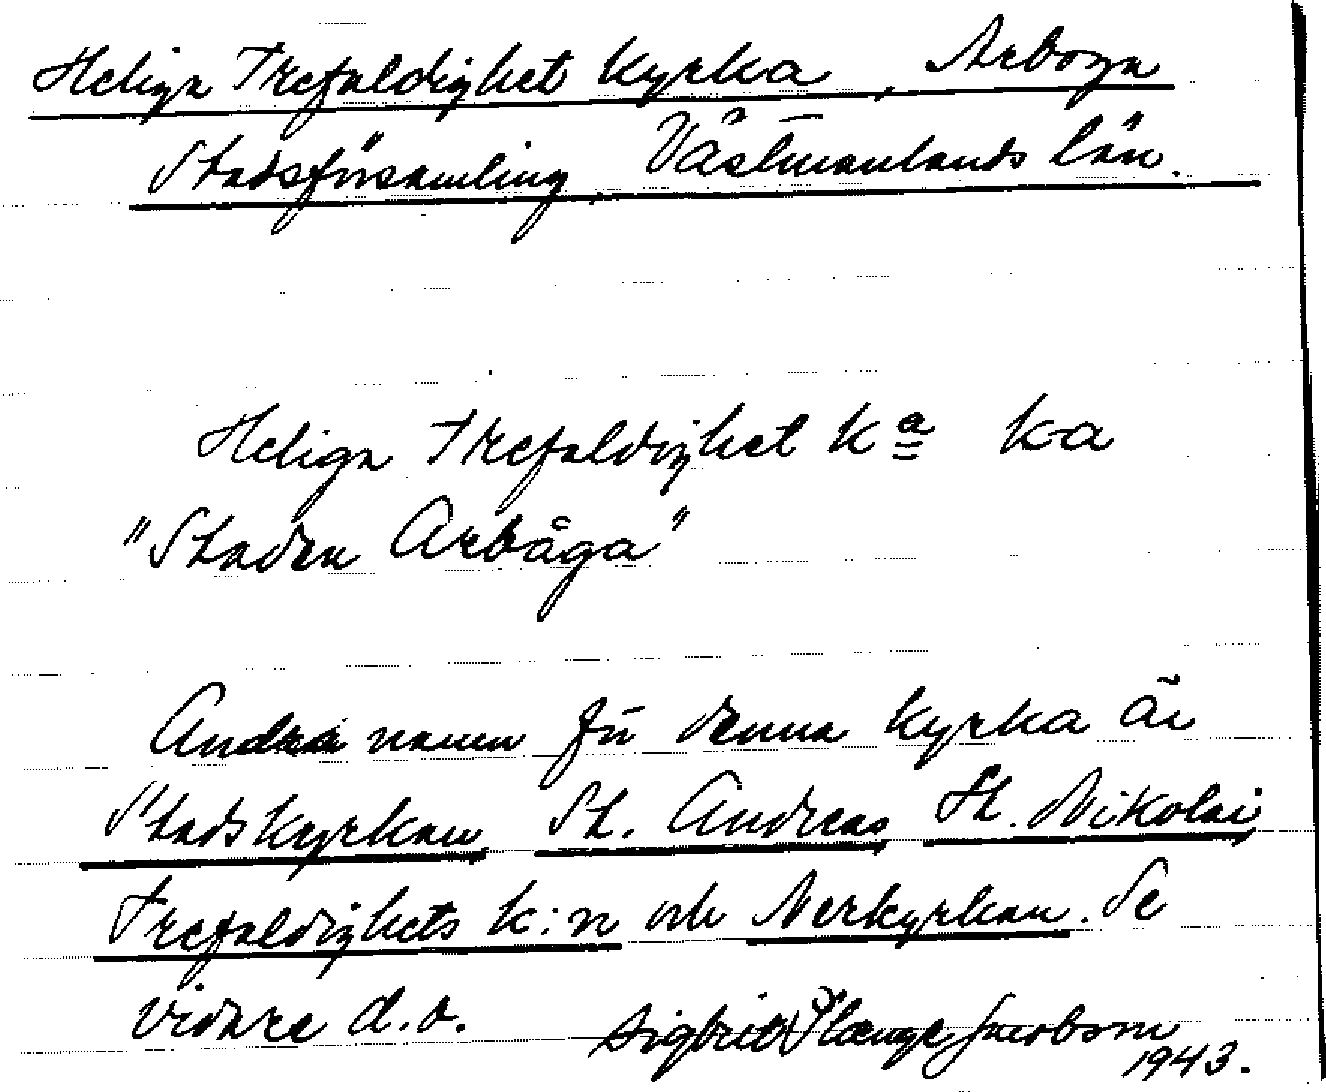 Heliga Trefaldighet Kyrka, Arboga
Stadsförsamling, Västmanlands län.
Heliga Trefaldighet k a ka
"Staden Arbåga"
Andra namn för denna kyrka är
Stadskyrkan, St. Andreas, St. Nikolai,
Trefaldighets k:n och Nerkyrkan. Se
vidare d.o. Sigfrid Jacobson
1943.